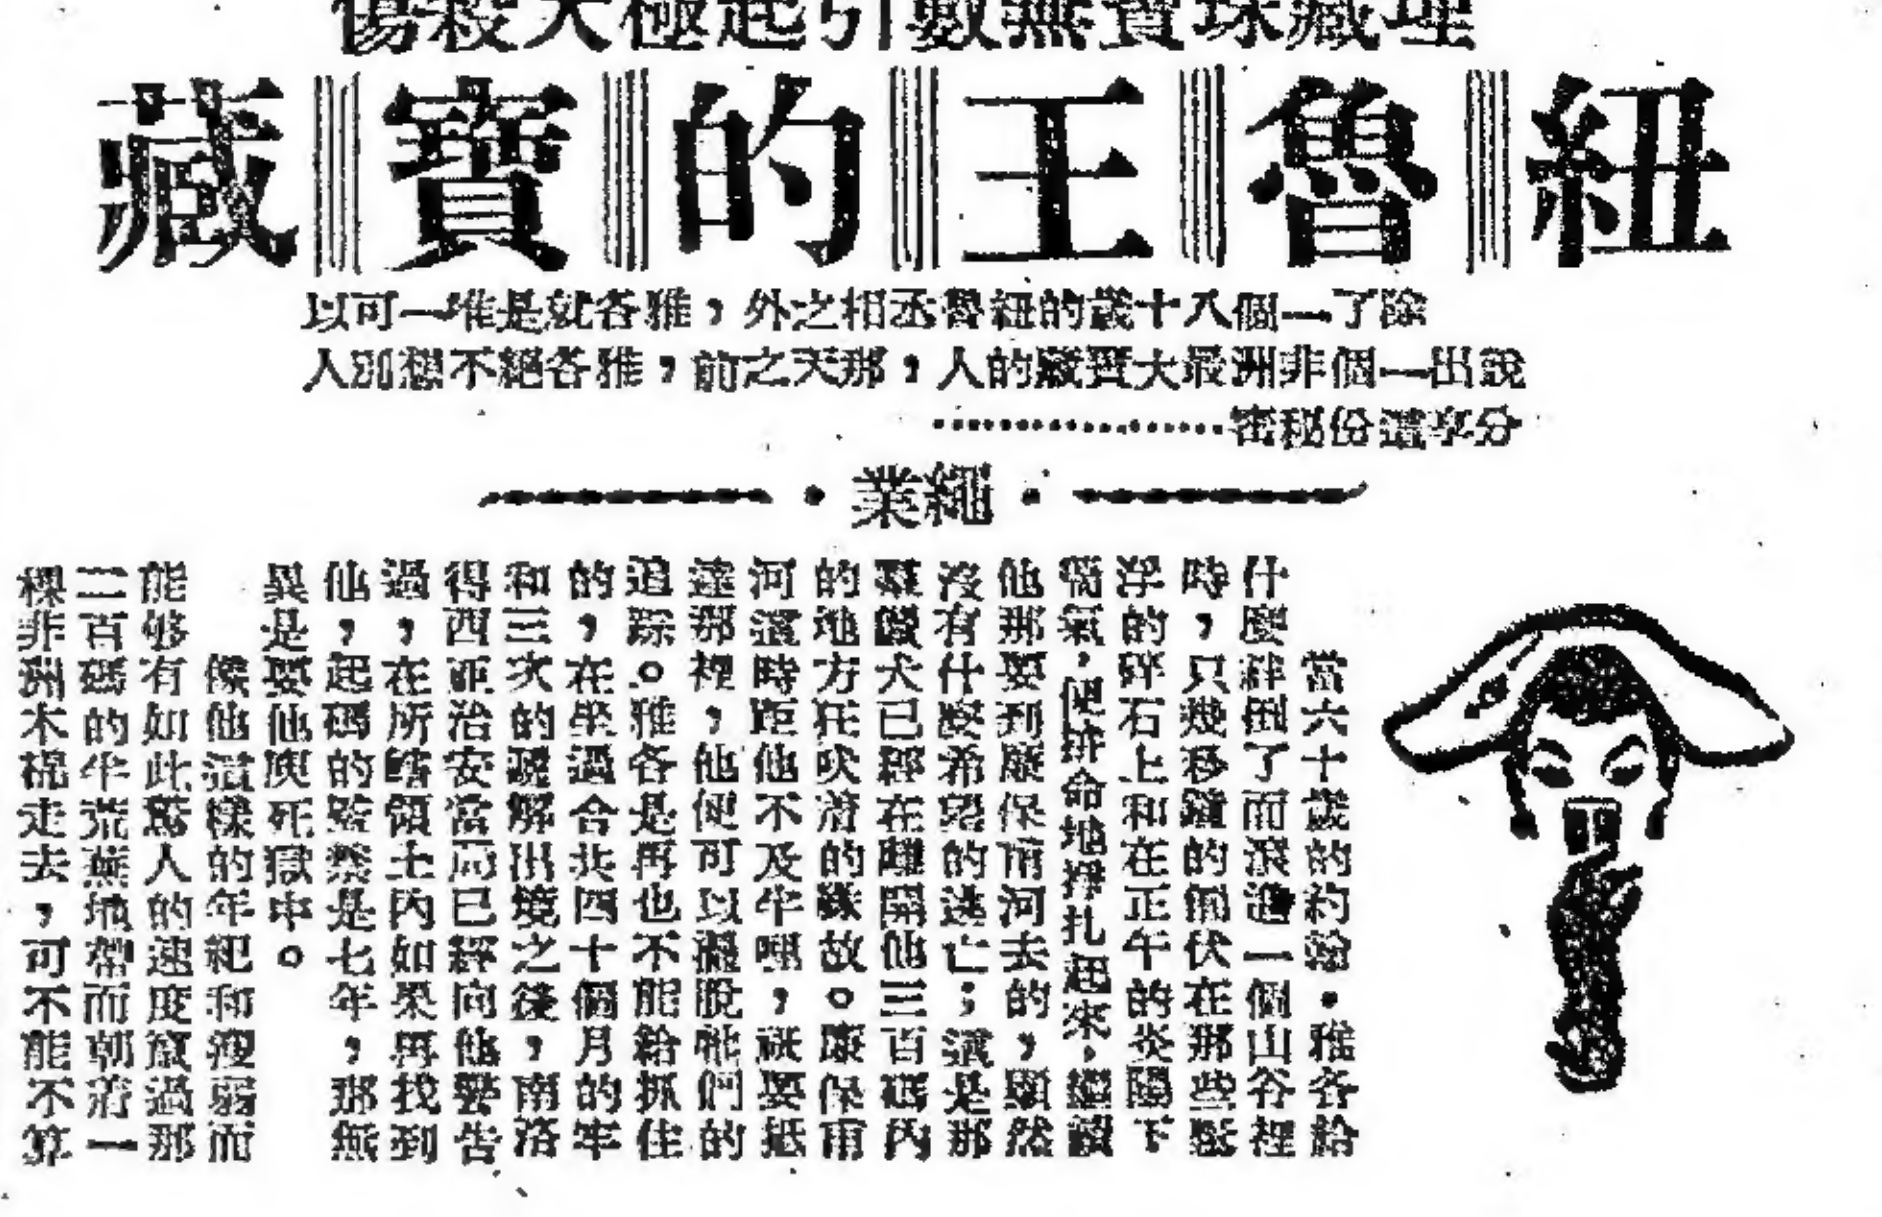 埋藏珠寶無數引起極大殺傷
紐魯王的寶藏
除了一個八十歲的紐魯丞相之外，雅各就是唯一可以
說出一個非洲最大寶藏的人，那天之前，雅各絕不想別人
分享這份秘密………………
·繩業·
當六十歲的約翰．雅各給
什麼絆倒了而滾進一個山谷裡
時，只幾移的俯伏在那些懸
浮的碎石上和在正午的炎陽下
喘氣，便拚命地掙扎起來，繼續
他那要到康保甫河去的，顯然
沒有什麼希望的逃亡；這是那
羣獵犬已經在離開他三百碼內
的地方狂吠着的緣故。康保甫
河這時距他不及半哩，祇要抵
達那裡，他便可以擺脫牠們的
追踪。雅各是再也不能給抓住
的，在坐過合共四十個月的牢
和三次的遞解出境之後，南洛
得西距治安當局已經向他警告
過，在所轄領土內如果再找到
他，起碼的監禁是七年，那無
異是要他瘐死獄中。
像他這樣的年紀和瘦弱而
能够有如此驚人的速度竄過那
二百碼的半荒蕪地帶而朝着一
棵非洲木棉走去，可不能不算